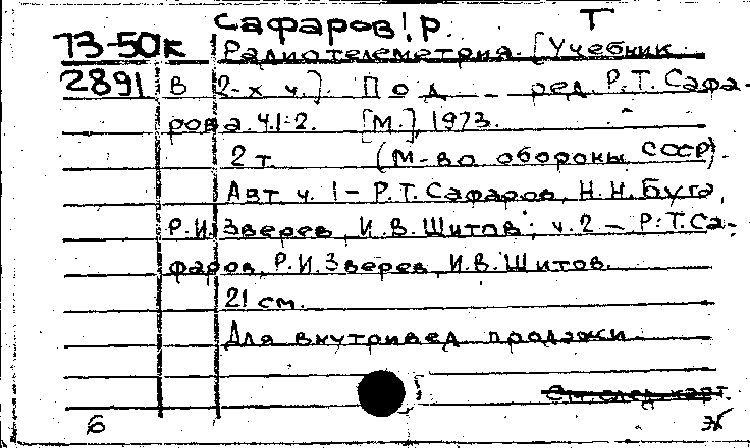 Сафаров, Р. Т
73-50к Радиотелеметрия. [Учебник
2891 В 2-х ч.]. Под ред. Р.Т. Сафа-
рова. Ч.1-2. [М.], 1973.
2 т. (М-во обороны СССР).
Авт. ч. 1 – Р.Т. Сафаров, Н.Н. Буга,
Р.И. Зверев, И.В. Шитов; ч. 2 – Р.Т. Са-
фаров, Р.И. Зверев, И.В. Шитов.
21 см.
Для внутривед. продажи
См. след. карт.
6